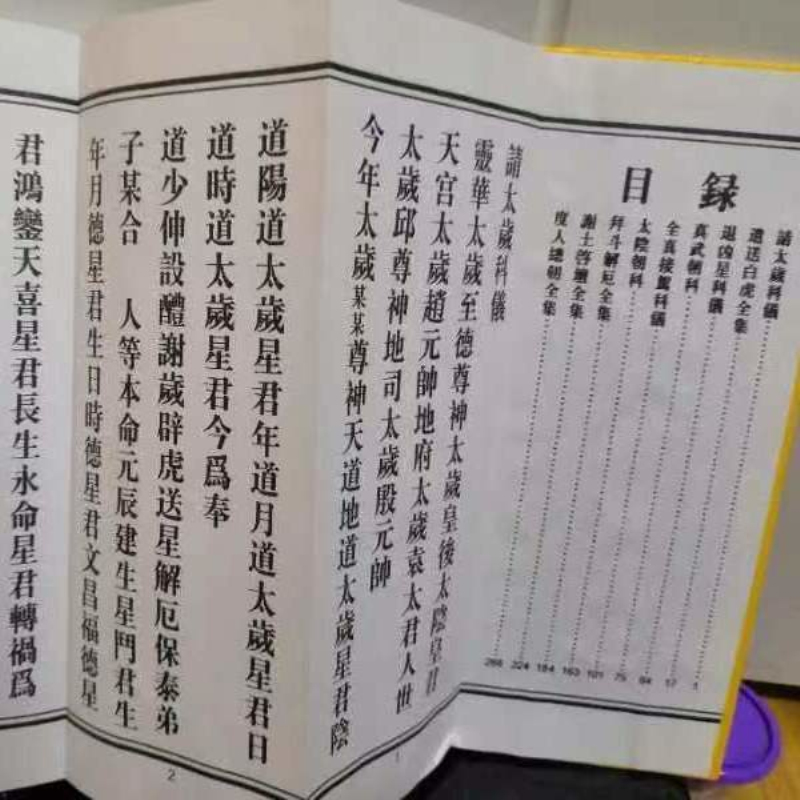 目錄
請太歲科儀 1
遣送白虎全集 17
退凶星科儀 64
真武朝科 75
全真接駕科儀 101
太陰朝科 163
拜斗解厄全集 184
謝土啓壇全集 224
度人總朝全集 266
請太歲科儀
靈華太歲至德尊神太歲皇後太陰皇君
天宮太歲趙元帥地府太歲袁太君人世
太歲邱尊神地司太歲殷元帥
今年太歲某某尊神天道地道太歲星君陰
1
道陽道太歲星君年道月道太歲星君日
道時道太歲星君今爲奉
道少伸設醮謝歲辟虎送星解厄保泰弟
子某合 人等本命元辰建生星鬥君生
年月德星君生日時德星君文昌福德星
2
君鴻鑾天喜星君長生永命星君轉禍爲